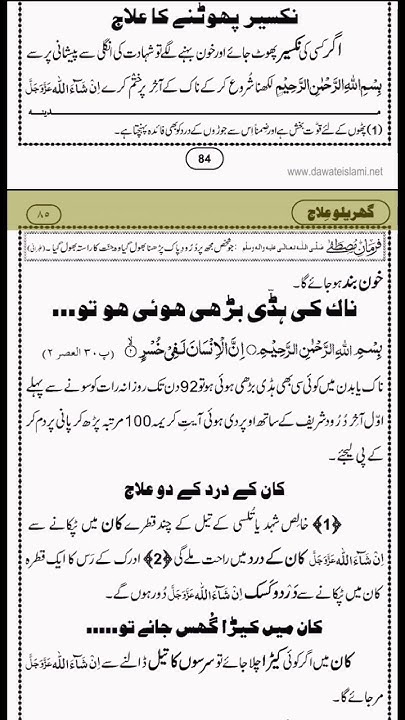 نکسیر پھوٹنے کا علاج
اگر کسی کی نکسیر پھوٹ جائے اور خون بہنے لگے تو شہادت کی انگلی سے پیشانی پر سے
بِسْمِ اللّٰهِ الرَّحْمٰنِ الرَّحِیْمِ لکھنا شروع کر کے ناک کے آخر پر ختم کرے اِنْ شَآءَ اللّٰه عَزَّوَجَلَّ
مدینہ
(1) پٹھوں کے لئے قوت بخش ہے اور ضمناً اس سے جوڑوں کے درد کو بھی فائدہ پہنچتا ہے۔
84
www.dawateislami.net
گھریلو علاج
۸۵
فرمانِ مصطفٰے صلی اللہ تعالیٰ علیہ والہ وسلم : جو شخص مجھ پر دُرُودِ پاک پڑھنا بھول گیا وہ جنّت کا راستہ بھول گیا۔ (طبرانی)
خون بند ہو جائے گا۔
ناک کی ہڈی بڑھی ہوئی ہو تو...
بِسْمِ اللّٰهِ الرَّحْمٰنِ الرَّحِیْمِ اِنَّ الْاِنْسَانَ لَفِیْ خُسْرٍ (پ ۳۰ العصر ۲)
ناک یا بدن میں کوئی سی بھی ہڈی بڑھی ہوئی ہو تو 92 دن تک روزانہ رات کو سونے سے پہلے
اوّل آخر دُرُود شریف کے ساتھ اوپر دی ہوئی آیتِ کریمہ 100 مرتبہ پڑھ کر پانی پر دم کر
کے پی لیجئے۔
کان کے درد کے دو علاج
﴿1﴾ خالص شہد یا تُلسی کے تیل کے چند قطرے کان میں ٹپکانے سے
اِنْ شَآءَ اللّٰه عَزَّوَجَلَّ کان کے درد میں راحت ملے گی ﴿2﴾ ادرک کے رَس کا ایک قطرہ
کان میں ٹپکانے سے دَرْد و کَسک اِنْ شَآءَ اللّٰه عَزَّوَجَلَّ دُور ہوں گے۔
کان میں کیڑا گُھس جائے تو.....
کان میں اگر کوئی کیڑا چلا جائے تو سرسوں کا تیل ڈالنے سے اِنْ شَآءَ اللّٰه عَزَّوَجَلَّ
مر جائے گا۔